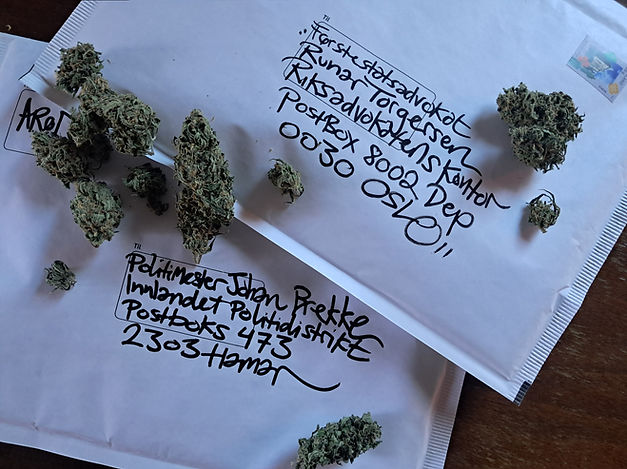 Til
"Førstestatsadvokat
Runar Torgersen
Riksadvokatens Kontor
PostBox 8002 Dep
0030 OSLO"
Til
Politimester Johan Brekke
Innlandet Politidistrikt
Postboks 473
2303 Hamar